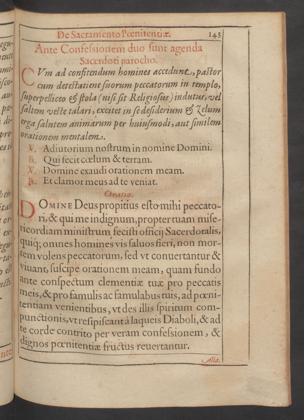 De Sacramento Pœnitentiæ. 145
Ante Confessionem duo sunt agenda
Sacerdoti parocho.
CVm ad confitendum homines accedunt, pastor
cum detestatione suorum peccatorum in templo,
superpelliceo & stola (nisi sit Religiosus) indutus, vel
saltem veste talari, excitet in se desiderium & zelum
erga salutem animarum per huiusmodi, aut similem
orationem mentalem.
V. Adiutorium nostrum in nomine Domini.
R. Qui fecit cœlum & terram.
V. Domine exaudi orationem meam.
R. Et clamor meus ad te veniat.
Oratio.
DOMINE Deus propitius esto mihi peccato-
ri, & qui me indignum, propter tuam mise-
ricordiam ministrum fecisti officij Sacerdotalis,
quiq; omnes homines vis saluos fieri, non mor-
tem volens peccatorum, sed vt conuertantur &
viuant, suscipe orationem meam, quam fundo
ante conspectum clementiæ tuæ pro peccatis
meis, & pro famulis ac famulabus tuis, ad pœni-
tentiam venientibus, vt des illis spiritum com-
punctionis, vt resipiscant à laqueis Diaboli, & ad
te corde contrito per veram confessionem, &
dignos pœnitentiæ fructus reuertantur.
Alia.